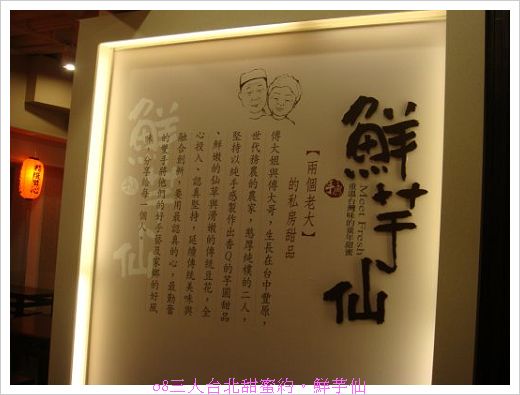 鮮芋仙
Meet Fresh
重溫台灣味的童年甜蜜
【兩個老大】
的私房甜品
傅大姐與傅大哥，生長在台中豐原，
世代務農的農家，憨厚純樸的二人，
堅持以純手感製作出香Q的芋圓甜品
、鮮嫩的仙草與滑嫩的傳統豆花，全
心投入、認真堅持，延續傳統美味與
融合創新，要用最認真的心，最勤奮
的雙手將他們的好手藝及家鄉的好風
味，分享給每一個人。
鮮芋仙
08三人台北甜蜜約。鮮芋仙